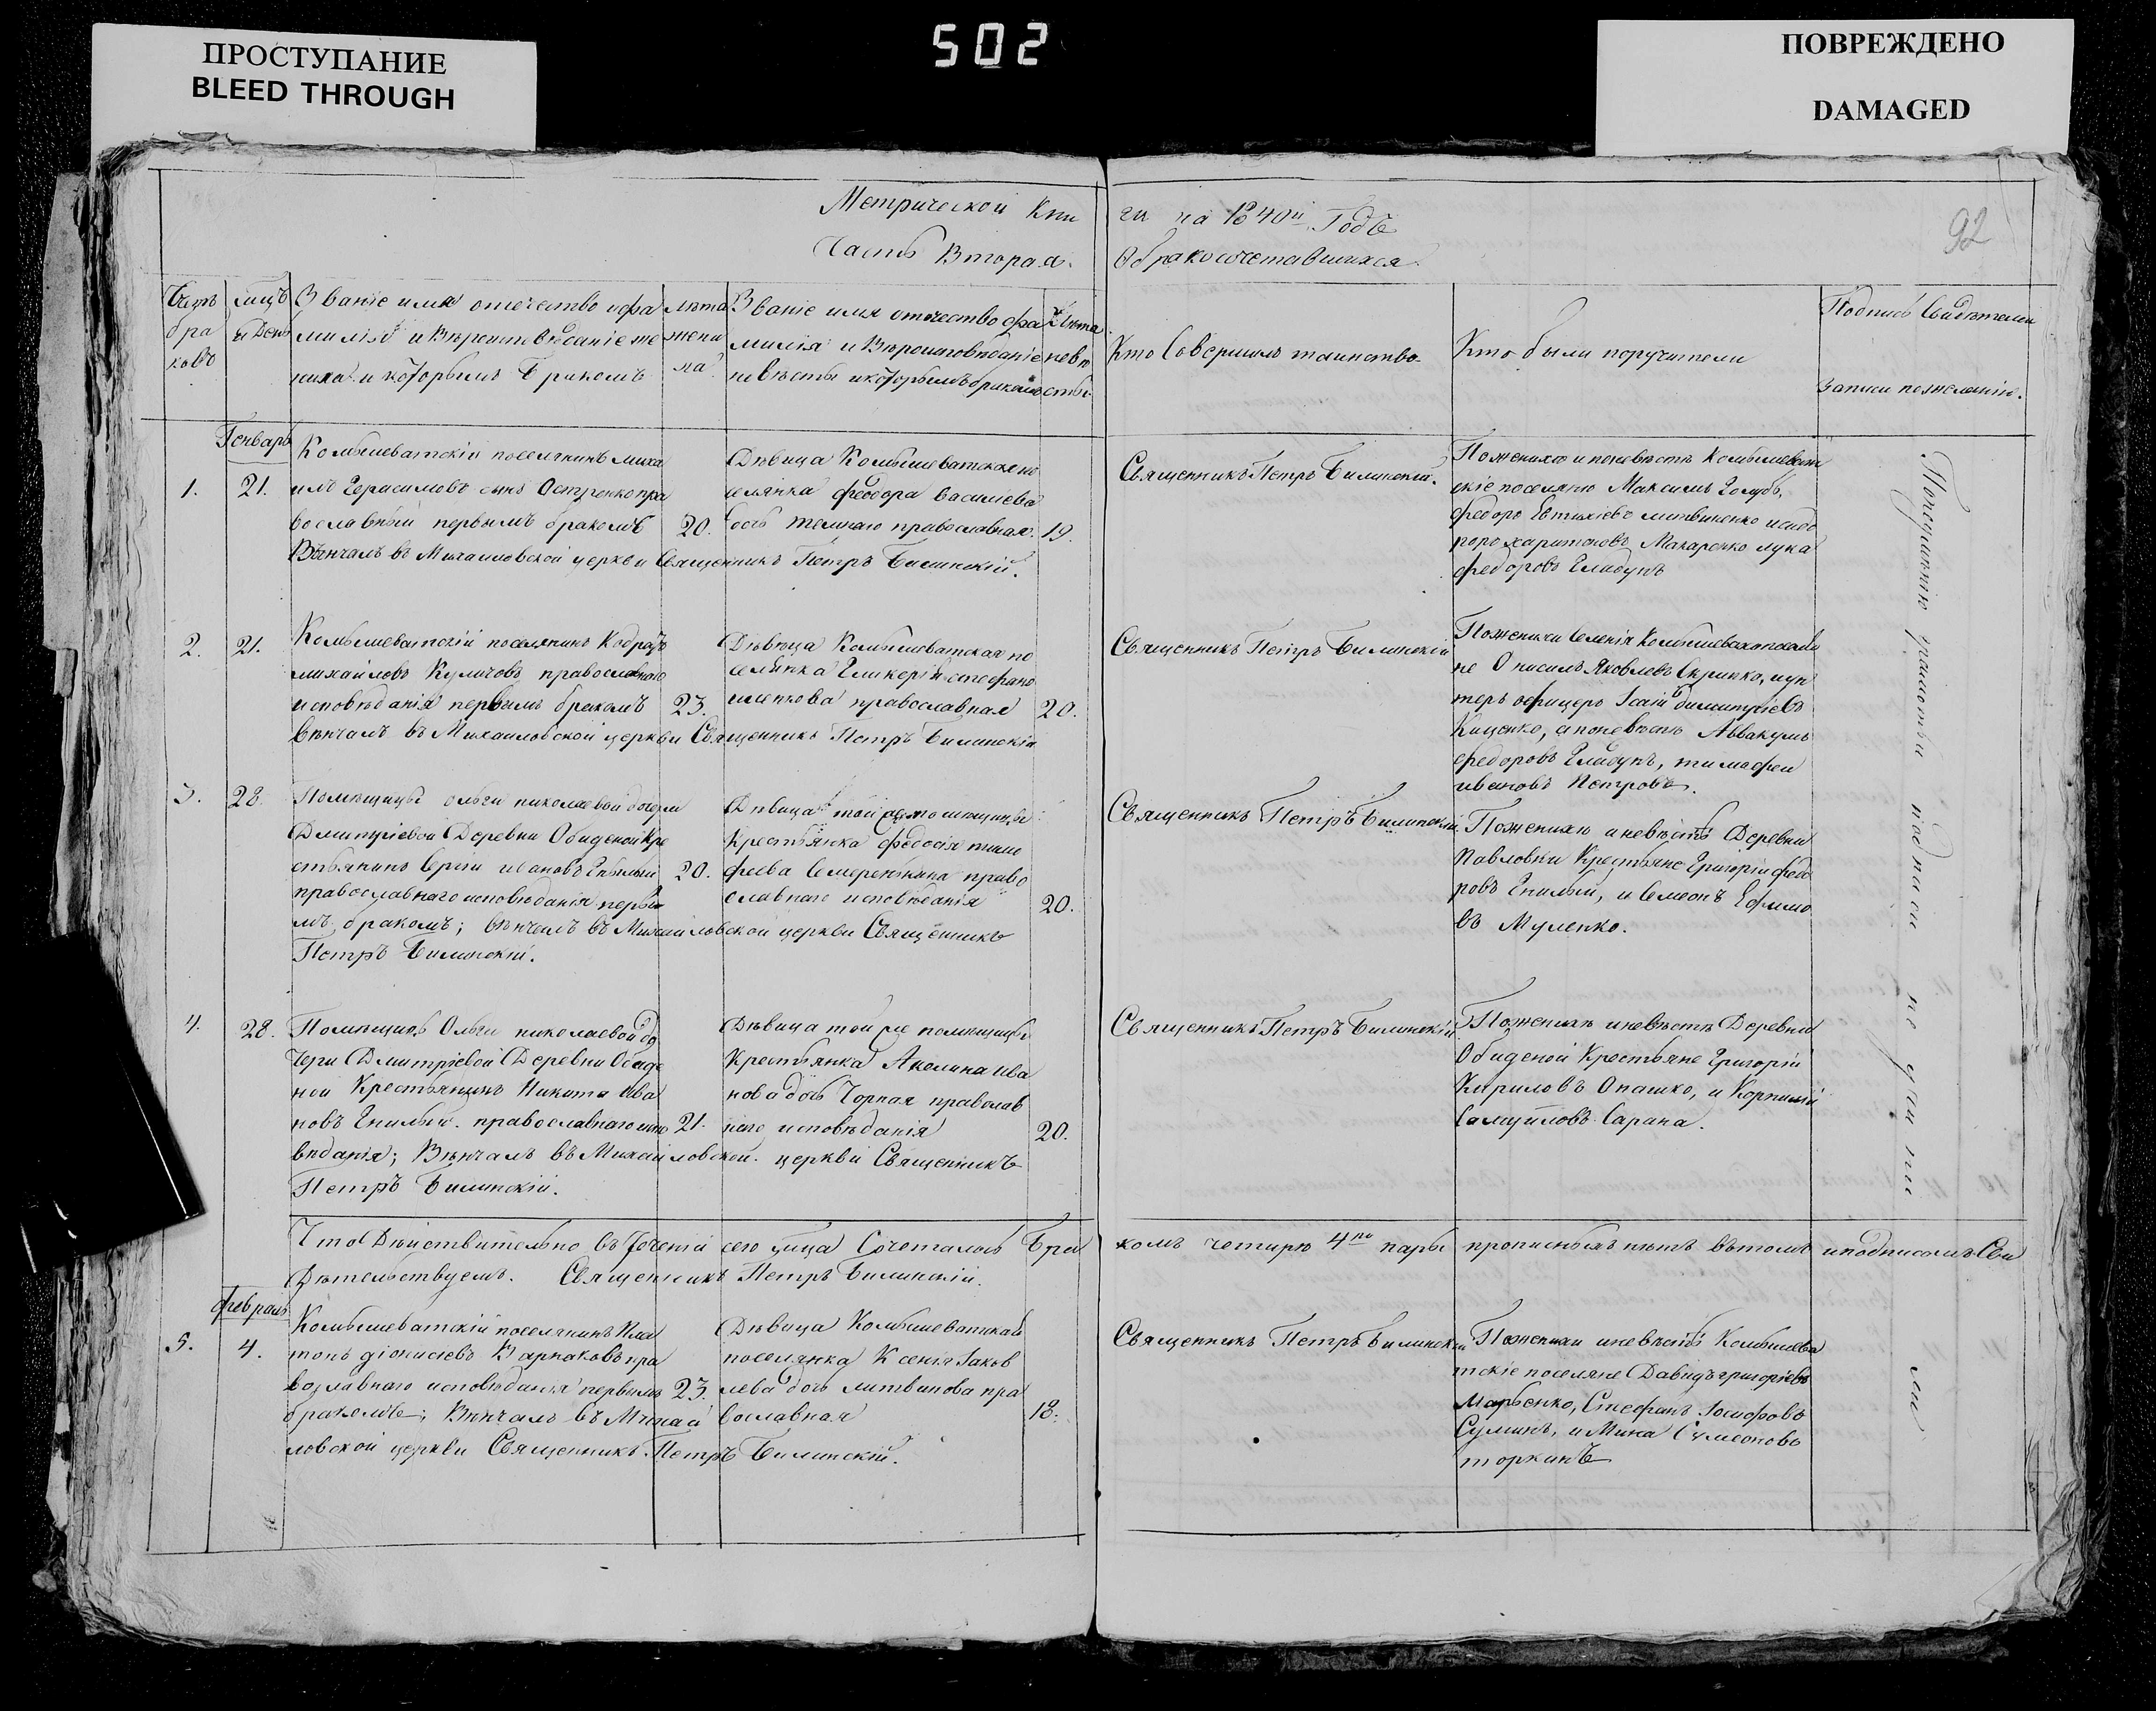 502
ПРОСТУПАНИЕ
BLEED THROUGH
ПОВРЕЖДЕНО
DAMAGED
92
Метрической Кни
ги на 1840й Годъ
Часть Вторая.
О бракосочетавшихся
бра
ковъ
мцъ
и День
Званіе имя отечество и фа
милія и Вѣроисповѣданіе же
ниха и которымъ бракомъ
лѣта
жени
ха
Званіе имя отечество фа
милія и Вѣроисповѣданіе не
вѣсты и которымъ бракомъ
лѣта
невѣ
сты
Кто Совершилъ таинство
Кто были поручители
Подпись Свидѣтелей
записи по желанію.
Генварь
1.
21.
Комышеватскій поселянинъ Миха
илъ Герасимовъ сынъ Остренко пра
вославный первымъ бракомъ
Вѣнчалъ въ Михаиловской церкви Священникъ Петръ Билинскій.
20.
Дѣвица Комышеватская по
селянка Феодора Василіева
православная.
19.
Священникъ Петръ Билинскій.
По женихѣ и по невѣстѣ Комышеват
скіе поселяне Максимъ Голубъ,
Федоръ Евтихіевъ Литвиненко
Харитоновъ Макаренко Лука
Федоровъ Гладунъ
2.
21.
Комышеватскій поселянинъ Кодратъ
Михаиловъ Куличовъ православнаго
исповѣданія первымъ бракомъ
Вѣнчалъ въ Михаиловской церкви Священникъ Петръ Билинскій
23.
Дѣвица Комышеватская по
селянка Гликерія Стефано
православная
20.
Священникъ Петръ Билинскій
По женихи Селенія
не Онисимъ Яковлевъ Скрипко, и ун
теръ офицеръ Димитріевъ
Каценко, а по невѣстѣ Аввакумъ
Федоровъ Гладунъ, Тимофеи
Ивановъ Петровъ.
3.
28.
Помѣщицы Ольги Николаевой дочери
Дмитріевой Деревни Обиденой Кре
стьянинъ Сергіи Ивановъ Гнылый
православнаго исповѣданія первы
мъ, бракомъ; вѣнчалъ въ Михаиловской церкви Священникъ
Петръ Билинскій.
20.
Дѣвица той же помѣщицы
Крестьянка Федосія Тимо
феева право
славнаго исповѣданія
20.
Священникъ Петръ Билинскій
По женихѣ и невѣстѣ Деревни
Павловки Крестьяне Григоріи Федо
ровъ Гнилый, и Семеонъ Ефимо
въ Муленко.
4.
28.
Помѣщицы Ольги Николаевой до
чери Дмитріевой Деревни Обиде
ной Крестьянинъ Никита Ива
новъ Гнилый. православнаго испо
вѣданія; Вѣнчалъ въ Михаиловской церкви Священникъ
Петръ Билинскій.
21.
Дѣвица той же помѣщицы
Крестьянка Акелина Ива
нова дочь Чорная православ
наго исповѣданія
20.
Священникъ Петръ Билинскій
По женихѣ и невѣстѣ Деревни
Обиденой Крестьяне Григоріи
Кириловъ Опашко, и Корнилій
Самуиловъ Сарана.
Что Дѣйствительно въ теченіи сего мца Сочеталось Бра
комъ четыре 4ре пары прописныхъ нѣтъ въ томъ и подписомъ Сви
Дѣтельствуемъ. Священникъ Петръ Билинскій.
Февраль
5.
4.
Комышеватскій поселянинъ Пла
тонъ Діонисіевъ Варнаковъ пра
вославнаго исповѣданія первымъ
бракомъ; Вѣнчалъ въ Михаи
ловской церкви Священникъ Петръ Билинскій.
23.
Дѣвица Комышеватская
поселянка Ксенія Іаков
лева дочь Литвинова пра
вославная
18.
Священникъ Петръ Билинскій
По женихи и невѣстѣ Комышева
тскіе поселяне Давидъ Григоріевъ
Марченко, Стефанъ Іосифовъ
Суминъ, и Мина Сумеоновъ
Торкинъ